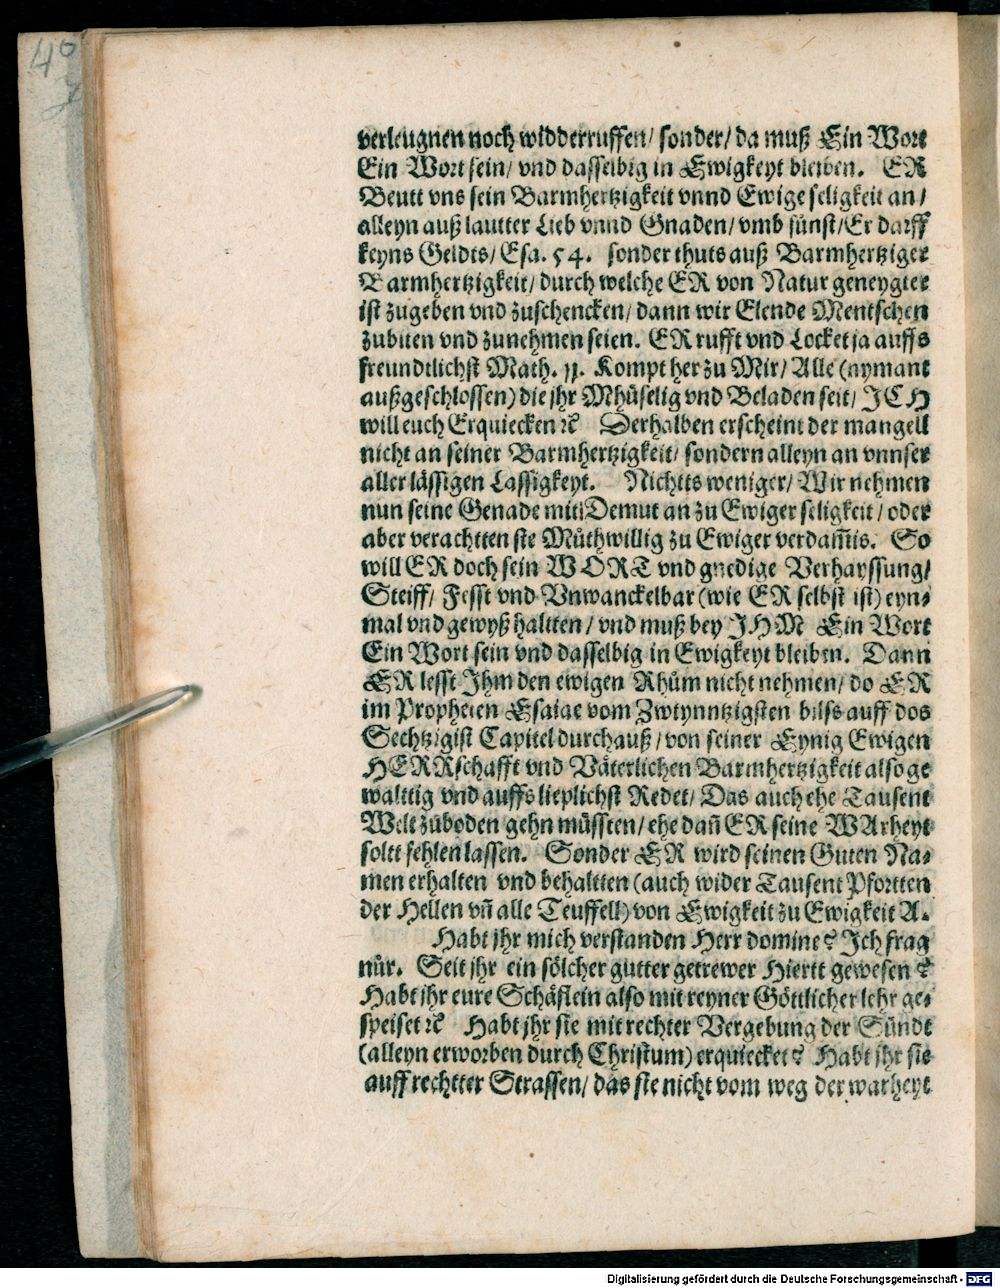 40
verleugnen noch widderruffen/ sonder/ da muß Ein Wort
Ein Wort sein/ vnd dasselbig in Ewigkeyt bleiben. ER
Beutt vns sein Barmhertzigkeit vnnd Ewige seligkeit an/
alleyn auß lautter Lieb vnnd Gnaden/ vmb sünst/ Er darff
keyns Geldts/ Esa. 54. sonder thuts auß Barmhertziger
Barmhertzigkeit/ durch welche ER von Natur geneygter
ist zugeben vnd zuschencken/ dann wir Elende Mentschen
zubiten vnd zunehmen seien. ER rufft vnd Locket ja auffs
freundtlichst Math. 11. Kompt her zu Mir/ Alle (nymant
außgeschlossen) die jhr Mhüselig vnd Beladen seit/ JCH
will euch Erquiecken ꝛc̃ Derhalben erscheint der mangell
nicht an seiner Barmhertzigkeit/ sondern alleyn an vnnser
aller lässigen Lassigkeyt. Nichtts weniger/ Wir nehmen
nun seine Genade mit Demut an zu Ewiger seligkeit/ oder
aber verachtten sie Můthwillig zu Ewiger verdam̃tis. So
will ER doch sein WORT vnd gnedige Verhayssung/
Steiff/ Fesst vnd Vnwanckelbar (wie ER selbst ist) eyn⸗
mal vnd gewyß haltten/ vnd muß bey JHM Ein Wort
Ein Wort sein vnd dasselbig in Ewigkeyt bleiben. Dann
ER lesst Jhm den ewigen Rhům nicht nehmen/ do ER
im Propheten Esaiae vom Zwtynntzigsten bilss auff dos
Sechtzigist Capitel durchauß/ von seiner Eynig Ewigen
HERRschafft vnd Väterlichen Barmhertzigkeit also ge
walttig vnd auffs lieplichst Redet/ Das auch ehe Tausent
Welt zůboden gehn müssten/ ehe dañ ER seine WArheyt
soltt fehlen lassen. Sonder ER wird seinen Guten Na⸗
men erhalten vnd behaltten (auch wider Tausent Pfortten
der Hellen vñ alle Teuffell) von Ewigkeit zu Ewigkeit A.
Habt jhr mich verstanden Herr domine? Jch frag
nůr. Seit jhr ein sölcher gutter getrewer Hiertt gewesen?
Habt jhr eure Schäflein also mit reyner Göttlicher lehr ge⸗
speiset ꝛc̃ Habt jhr sie mit rechter Vergebung der Sündt
(alleyn erworben durch Christum) erquiecket? Habt jhr sie
auff rechtter Strassen/ das sie nicht vom weg der warheyt
Digitalisierung gefördert durch die Deutsche Forschungsgemeinschaft - DFG